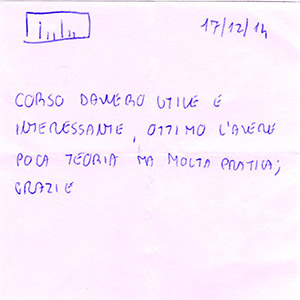 17/12/14
CORSO DAVVERO UTILE E
INTERESSANTE, OTTIMO L'AVERE
POCA TEORIA MA MOLTA PRATICA;
GRAZIE